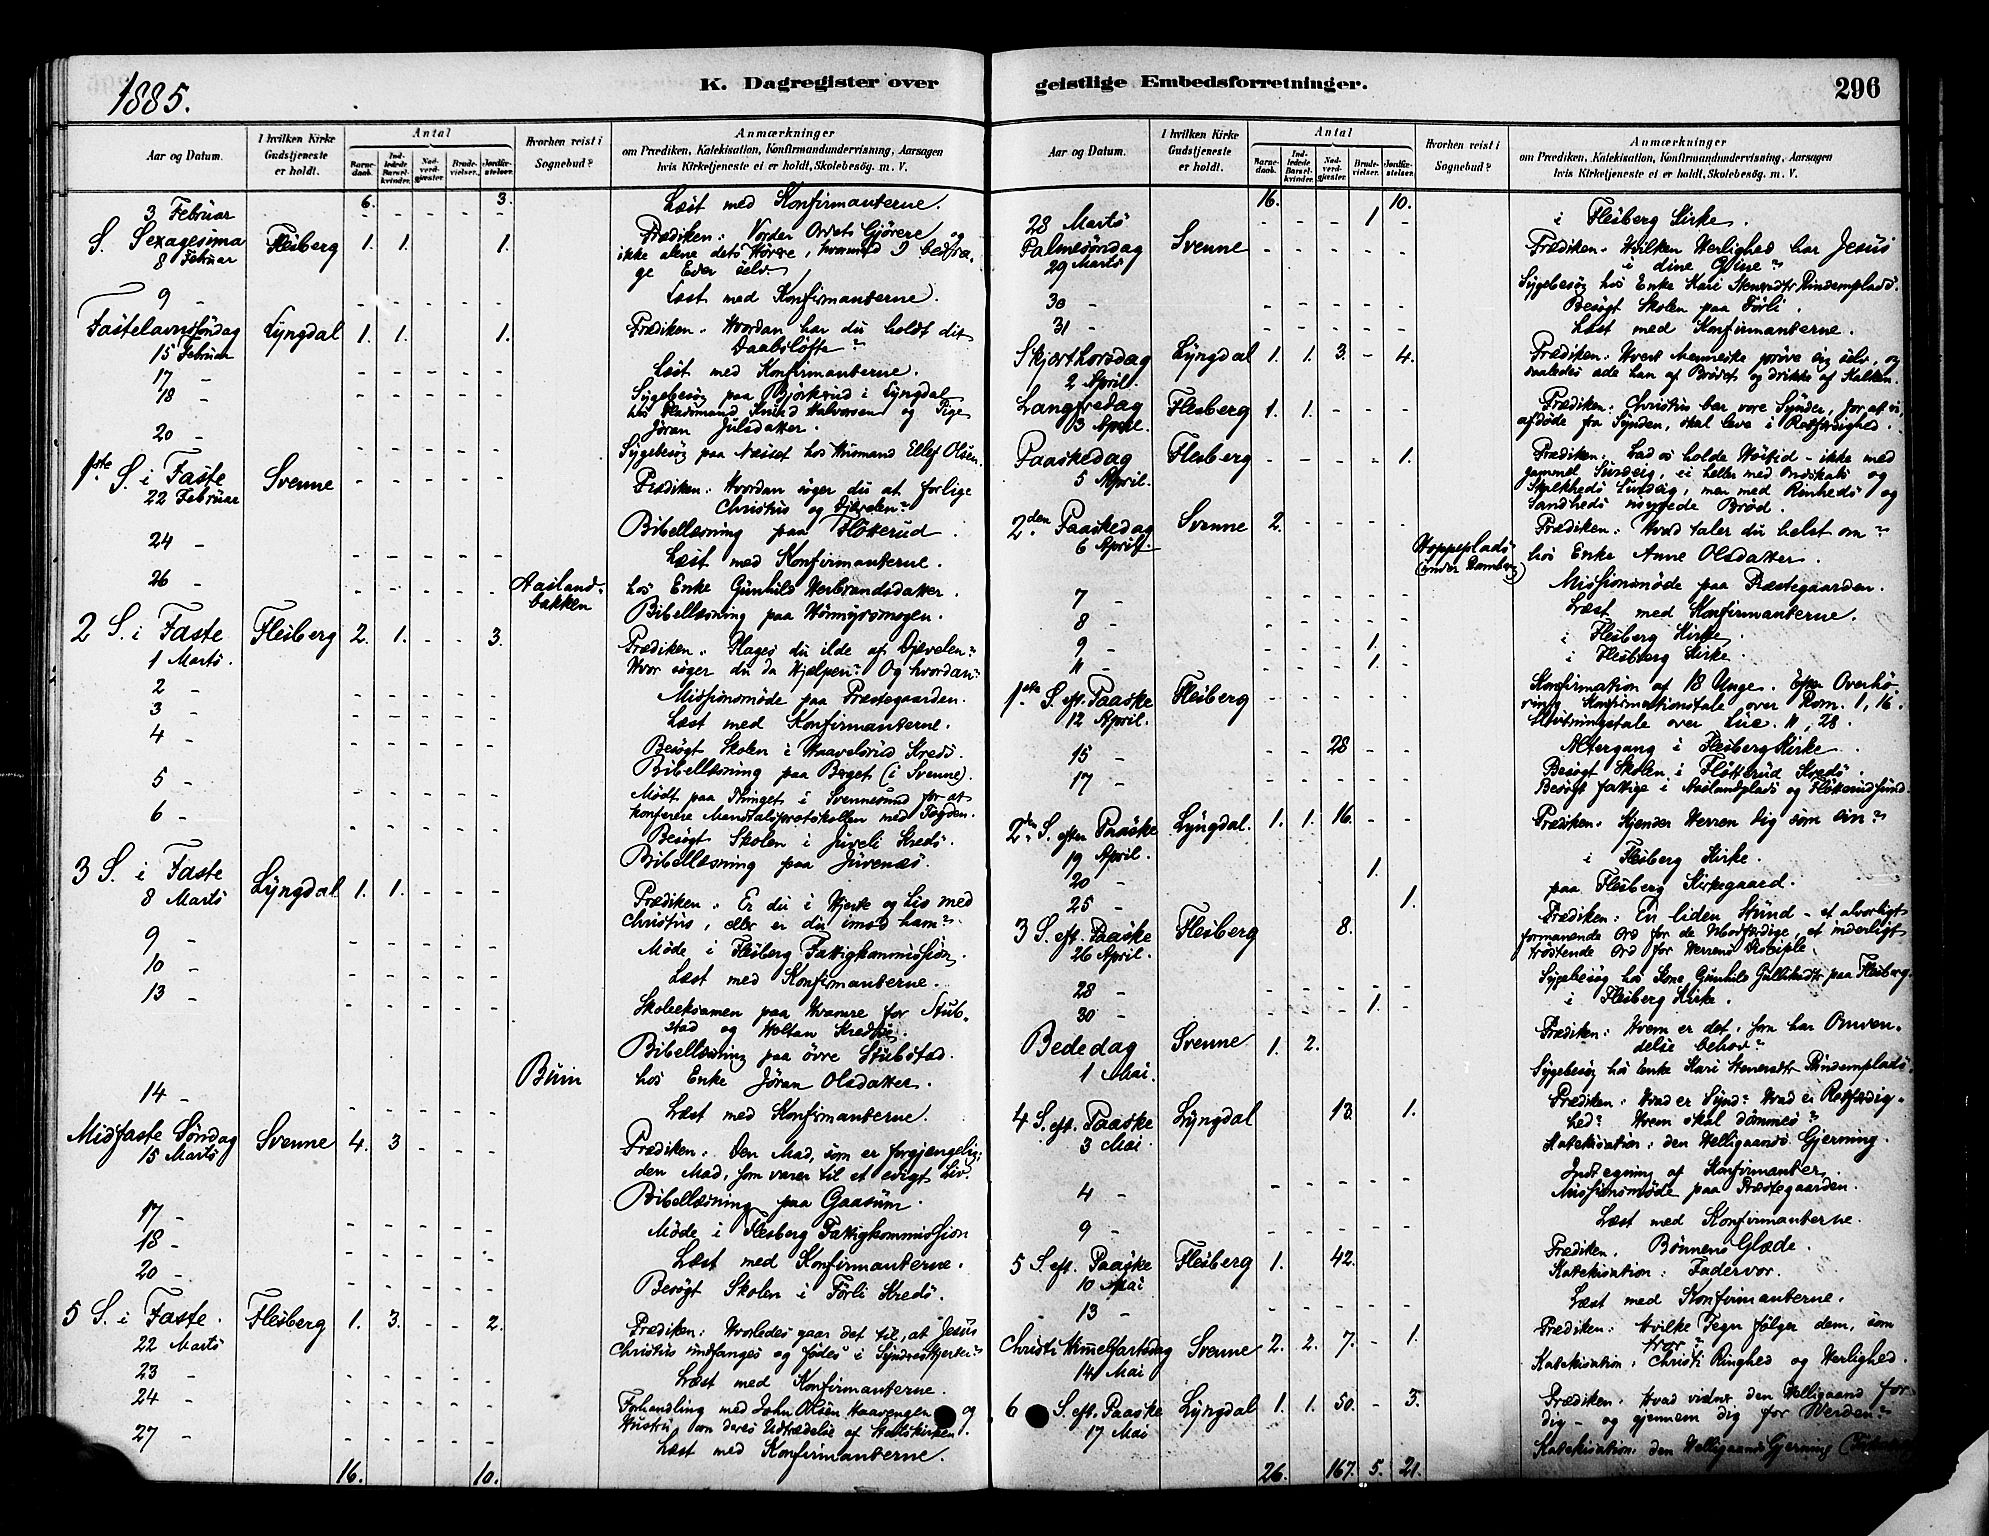 1885.
K. Dagregister over
Aar og Datum.
I hvilken Kirke Gudstjeneste er holdt.
Antal
Barnedaab.
Indledede Barselkvinder.
Nadverdgjæster.
Brudevielser.
Jordfæstelser.
Hvorhen reist i Sognebud?
Anmærkninger
om Prædiken, Katekisation, Konfirmandundervisning, Aarsagen
hvis Kirketjeneste ei er holdt, Skolebesøg. m. V.
6. 3.
3 Februar - - - - - Læst med Konfirmanterne.
S. Sexagesima Flesberg 1. 1. 1. Prædiken: Vorder Ordets Gjørere og
8 Februar ikke alene dets Hørere, hvormed I bedra-
ge Eder selv
9 - Læst med Konfirmanterne.
Fastelavnssøndag Lyngdal 1. 1. 1. Prædiken. Hvordan har du holdt dit
15 Februar Daabsløfte?
17 - Læst med Konfirmanterne.
18 - Sygebesøg paa Bjørkerud i Lyngdal
hos Pladsmand Knud Halvorsen og Pige
Jøran Julsdatter.
20 - Sygebesøg paa Næset hos Husmand Ellef Olsen.
1ste S. i Faste Svenne Prædiken: Hvordan søger du at forlige
22 Februar Christus og Djævelen?
Bibellæsning paa Fløtterud.
24 - Læst med Konfirmanterne.
26 - Aasland-bakken hos Enke Gunhild Herbrandsdatter.
Bibellæsning paa
2 S. i Faste Flesberg 2. 1. - - 3. Prædiken. Plages du ilde af Djævelen?
1 Marts. Hvor søger du da Hjælpen? Og hvordan?
2 - Missionsmøde paa Præstegaarden.
3 - Læst med Konfirmanterne.
4 - Besøgt Skolen i Haavelsrud Kreds.
Bibellæsning paa Berget (i Svenne).
5 - Mødt paa Thinget i Svennesund for at
konferere Mandtalsprotokollen med Fogden.
6 - Besøgt Skolen i Juveli Kreds.
Bibellæsning paa Juvenæs.
3 S. i Faste Lyngdal 1. 1. - - - Prædiken. Er du i Hjerte og Liv med
8 Marts Christus, eller er du imod ham?
9 - Møde i Flesberg Fattigkommission.
10 - Læst med Konfirmanterne.
13 - Skoleeksamen paa Hvamre for Stub-
stad og Holtan Kredse.
Bibellæsning paa øvre Stubstad.
Buin hos Enke Jøran Olsdatter.
14 - Læst med Konfirmanterne.
Midfaste Søndag Svenne 4. 3 - - - Prædiken. Den Mad, som er forgjængelig:
15 Marts den Mad, som varer til et evigt Liv.
Bibellæsning paa Gaasum.
17 - Møde i Flesberg Fattigkommission
18 - Læst med Konfirmanterne.
20 - Besøgt Skolen i Førli Kreds.
5 S. i Faste. Flesberg 1. 3. - - 2. Prædiken: Hvorledes gaar det til, at Jesus
22 Marts Christus undfanges og fødes i Syndres Hjerter?
23 - Læst med Konfirmanterne.
24 - Forhandling med John Olsen Haavengen og
Hustru om deres Udtrædelse af Statskirken.
27 - Læst med Konfirmanterne.
16. 10.
geistlige Embedsforretninger.
296
Aar og Datum.
I hvilken Kirke Gudstjeneste er holdt.
Antal
Barnedaab.
Indledede Barselkvinder.
Nadverdgjæster.
Brudevielser.
Jordfæstelser.
Hvorhen reist i Sognebud?
Anmærkninger
om Prædiken, Katekisation, Konfirmandundervisning, Aarsagen
hvis Kirketjeneste ei er holdt, Skolebesøg. m. V.
16. 10.
28 Marts - - - 1 - i Flesberg Kirke.
Palmesøndag Svenne Prædiken. Hvilken Herlighed har Jesus
29 Marts i dine Øine?
Sygebesøg hos Enke Kari Stenersdtr Rindemplads.
30 - Besøgt Skolen paa Førli.
31 - Læst med Konfirmanterne.
Skjærthorsdag Lyngdal 1. 1. 3. - 4. Prædiken: Hvert Menneske prøve sig selv, og
2 April. saaledes æde han af Brødet og drikke af Kalken.
Langfredag Flesberg 1. 1. - - - Prædiken: Christus bar vore Synder, for at vi,
3 April. afdøde fra Synden, skal leve i Retfærdighed.
Paaskedag Flesberg - - - - 1. Prædiken: Lad os holde Høitid - ikke med
5 April. gammel Surdeig, ei heller med Ondskabs og
Skalkheds Surdeig, men med Renheds og
Sandheds usyrede Brød.
2den Paaskedag Svenne 2. - - - - Prædiken: Hvad taler du helst om?
6 April. Hoppeplads (under Lomberg) hos Enke Anne Olsdatter.
7 - Missionsmøde paa Præstegaarden.
8 - Læst med Konfirmanterne.
9 - 1. i Flesberg Kirke.
11 - 1. i Flesberg Kirke.
1ste S. eft. Paaske Flesberg Konfirmation af 18 Unge. Efter Overhø-
12 April. ring Konfirmationstale over Rom. 1, 16.
Slutningstale over Luc. 11, 28.
15 - 28 - - Altergang i Flesberg Kirke.
17 - Besøgt Skolen i Fløtterud Kreds.
Besøgt fattige i Aaslandplads og
2den S. efter Paaske Lyngdal. 1. 1. 16. - - Prædiken. Kjender Herren dig som sin?
19 April.
20 - 1. i Flesberg Kirke.
25 - 1. paa Flesberg Kirkegaard.
3 S. eft. Paaske Flesberg 8. Prædiken: En liden Stund - et alvorligt
26 April. formanende Ord for de Uodfærdige, et inderligt
trøstende Ord for Herrens Disciple.
28 - Sygebesøg hos Kone Gunhild Gulliksdtr paa Flesberg.
30 - 1. i Flesberg Kirke.
Bededag Svenne 1. 2. Prædiken: Hvem er det, som har Omven-
1 Mai. delse behov?
Sygebesøg hos Enke Kari Stenersdtr Rindemplads.
4 S. eft. Paaske Lyngdal 13. 1. Prædiken: Hvad er Synd? Hvad er Retfærdig-
3 Mai hed? Hvem skal dømmes?
Katekisation: den Helligaands Gjerning.
Indtegning af Konfirmanter.
4 - Missionsmøde paa Præstegaarden.
9 - Læst med Konfirmanterne.
5 S. eft. Paaske Flesberg 1. 42. Prædiken. Bønnens Glæde.
10 Mai Katekisation: Fadervor.
13 - Læst med Konfirmanterne.
Christi Himmelfartsdag Svenne 2. 2. 7. - 1. Prædiken: Hvilke Tegn følger dem, som
14 Mai tror?
Katekisation: Christi Ringhed og Herlighed.
6 S. eft. Paaske Lyngdal 1. 1. 50. - 3. Prædiken: Hvad vidner den Helligaand for
17 Mai dig - og gjennem dig for Verden?
Katekisation: den Helligaands Gjerning
26. 167. 5. 21.